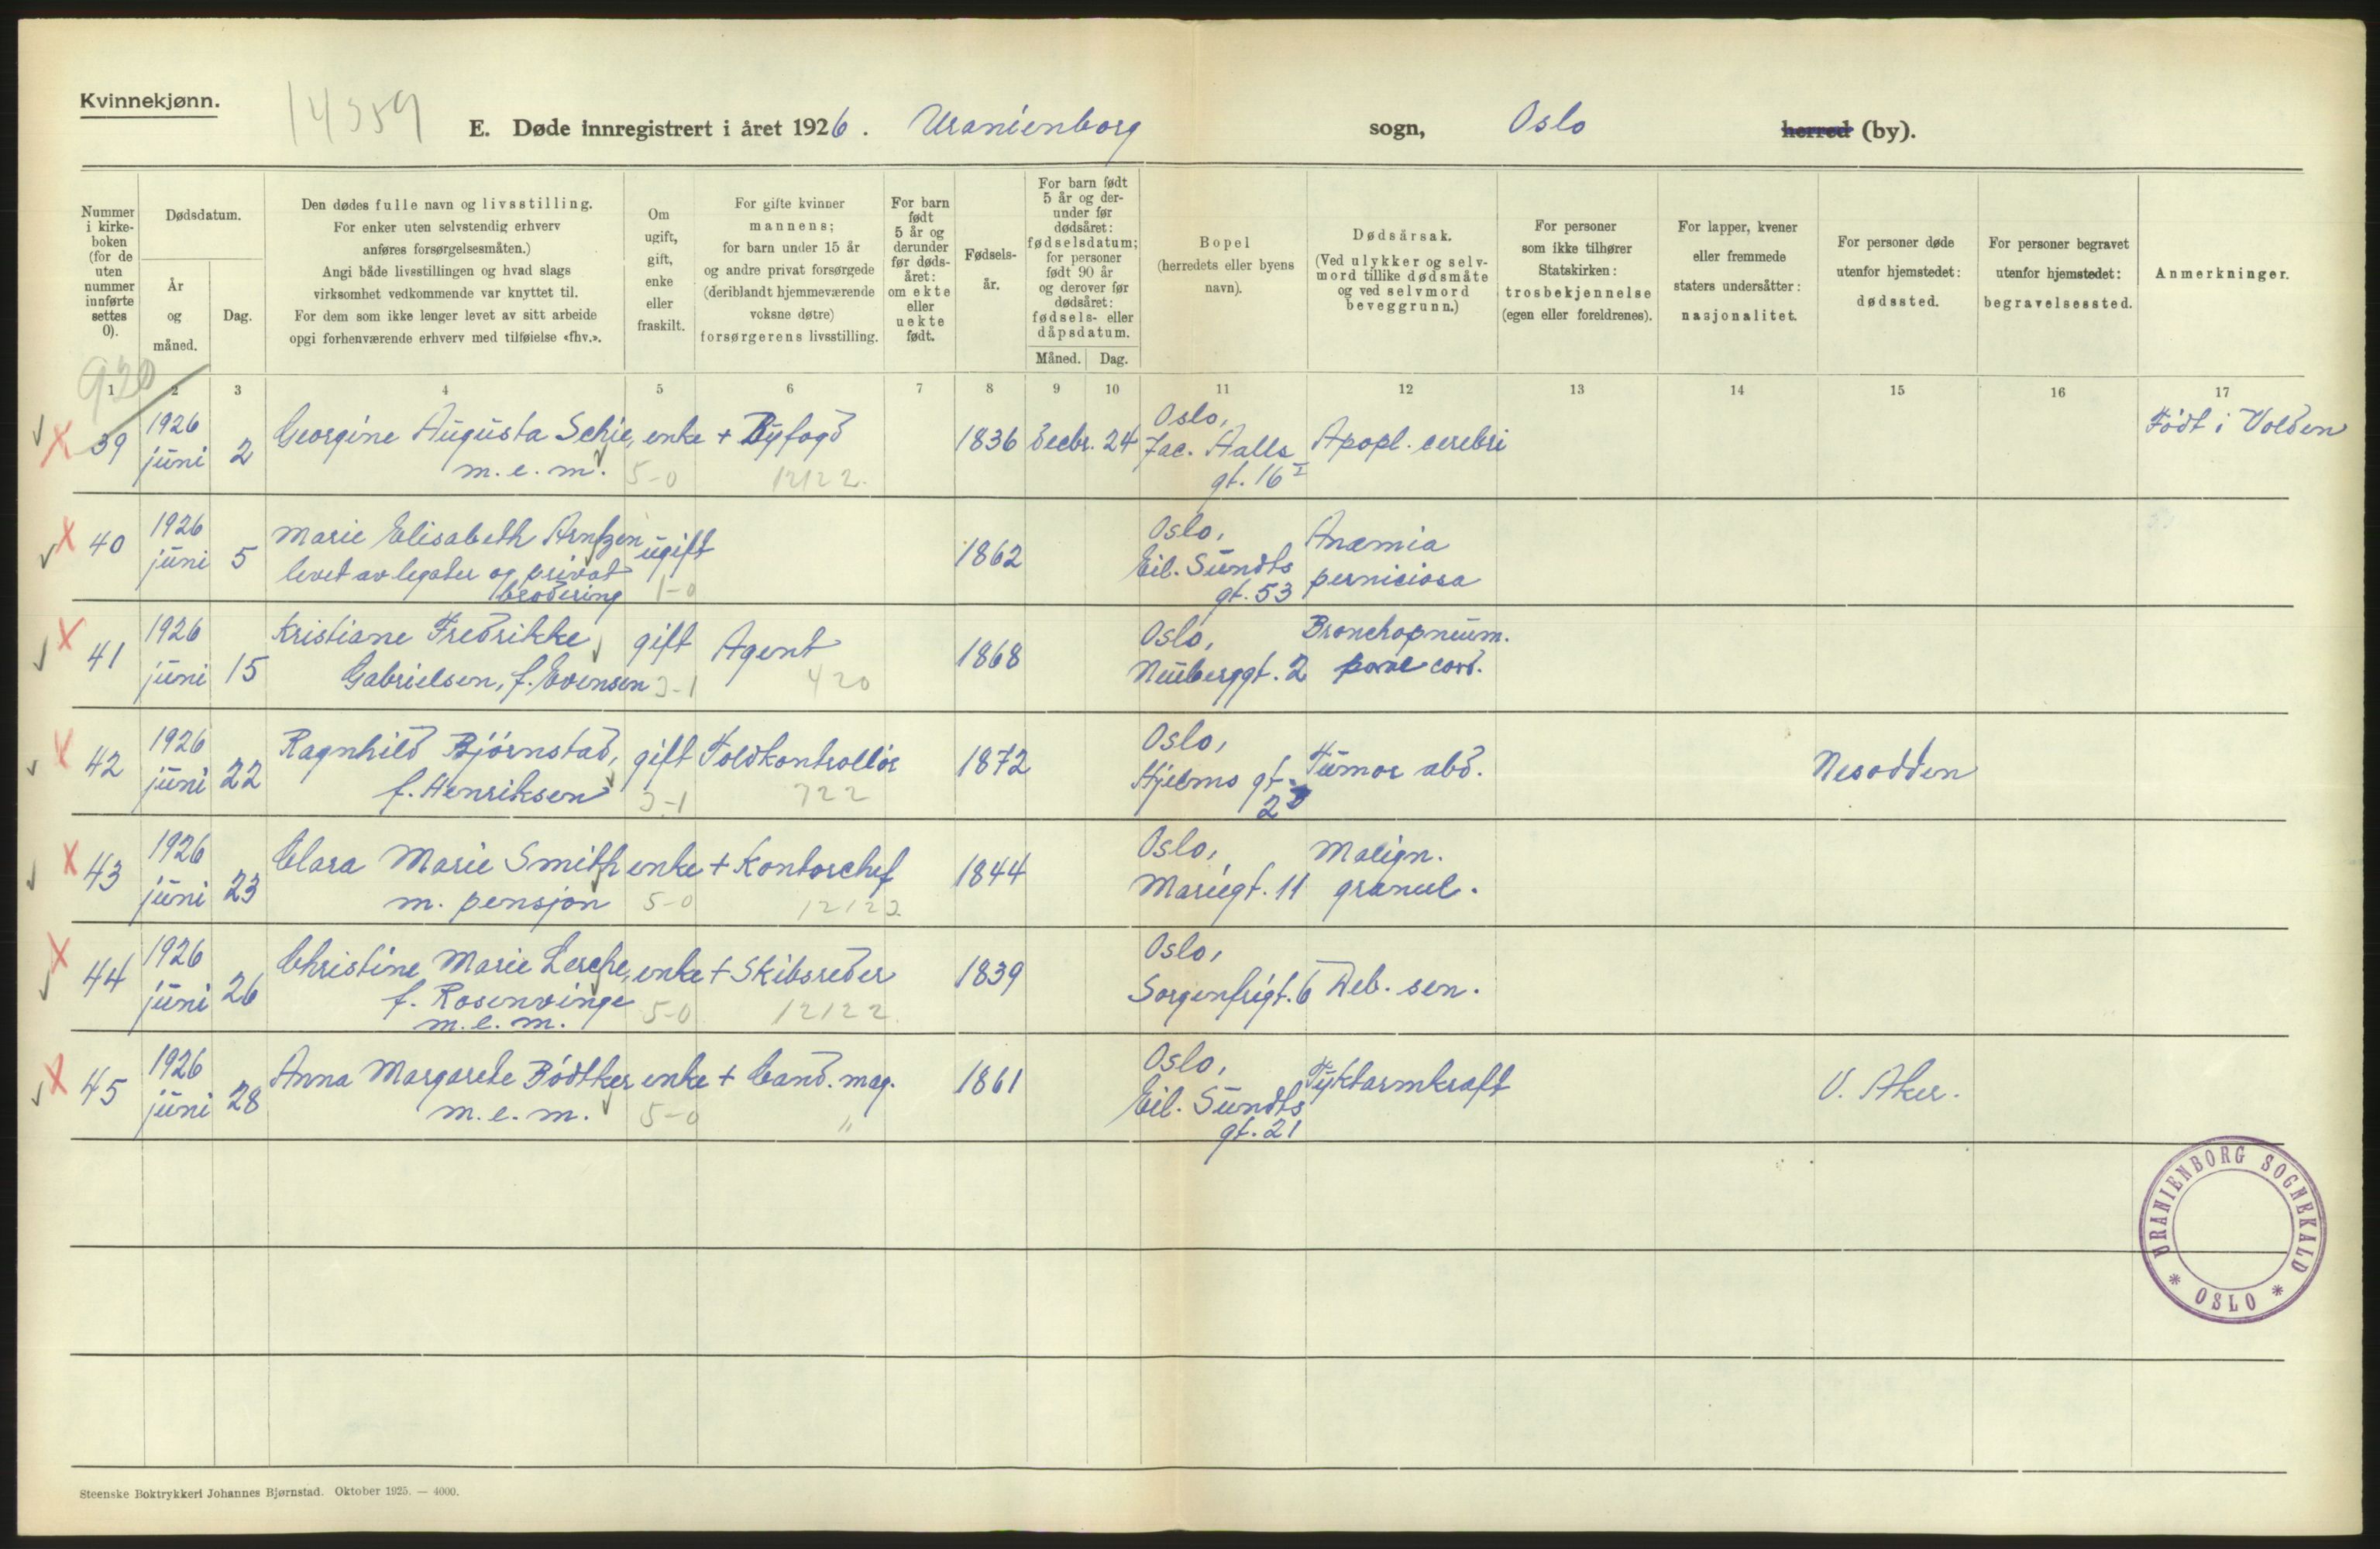 Kvinnekjønn.
14359
E. Døde innregistrert i året 1926. Uranienborg sogn, Oslo herred (by).
Nummer i kirke-boken (for de uten nummer innførte settes 0).
Dødsdatum.
År og måned.
Dag.
Den dødes fulle navn og livsstilling.
For enker uten selvstendig erhverv
anføres forsørgelsesmåten.)
Angi både livsstillingen og hvad slags
virksomhet vedkommende var knyttet til.
For dem som ikke lenger levet av sitt arbeide
opgi forhenværende erhverv med tilføielse «fhv.».
Om ugift, gift, enke eller fraskilt.
For gifte kvinner
mannens;
for barn under 15 år
og andre privat forsørgede
(deriblandt hjemmeværende
voksne døtre)
forsørgerens livsstilling.
For barn født 5 år og derunder før døds-året: om ekte eller uekte født.
Fødsels-år.
For barn født
5 år og der-
under før
dødsåret:
fødselsdatum;
for personer
født 90 år
og derover før
dødsåret:
fødsels- eller
dåpsdatum.
Måned. Dag.
Bopel
(herredets eller byens
navn).
Dødsårsak.
(Ved ulykker og selv-
mord tillike dødsmåte
og ved selvmord
beveggrunn.)
For personer
som ikke tilhører
Statskirken:
trosbekjennelse
(egen eller foreldrenes).
For lapper, kvener
eller fremmede
staters undersåtter:
nasjonalitet.
For personer døde
utenfor hjemstedet:
dødssted.
For personer begravet
utenfor hjemstedet:
begravelsessted.
Anmerkninger.
920
1 2 3 4 5 6 7 8 9 10 11 12 13 14 15 16 17
39 1926 juni 2 Georgine Augusta Schie, enke + Byfogd 1836 Decbr. 24 Oslo, Jac. Aalls gt. 16 I Apopl. cerebri Født i Volden
m. e. m. 5-0 12122.
40 1926 juni 5 Marie Elisabeth Arntzen ugift 1862 Oslo, Eil. Sundts gt. 53 Anæmia perniciosa
levet av legater og privat
brodering 1-0
41 1926 juni 15 Kristiane Fredrikke gift Agent 1868 Oslo, Neuberggt. 2 Bronchopneum. paral cord.
Gabrielsen, f. Evensen 3-1 420
42 1926 juni 22 Ragnhild Bjørnstad, gift Toldkontrollør 1872 Oslo, Hjelms gt. 2 Tumor abd. Nesodden
f. Henriksen 3-1 722
43 1926 juni 23 Clara Marie Smith enke + Kontorchef 1844 Oslo, Mariegt. 11 Malign. granul.
m. pensjon 5-0 12122
44 1926 juni 26 Christine Marie Lerche, enke + Skibsreder 1839 Oslo, Sorgenfrigt. 6 Deb. sen.
f. Rosenvinge
m. e. m. 5-0 12122.
45 1926 juni 28 Anna Margarete Bødtker enke + Cand. mag. 1861 Oslo, Eil. Sundts gt. 21 Tyktarmkraft V. Aker.
m. e. m. 5-0 "
URANIENBORG SOGNEKALD * OSLO *
Steenske Boktrykkeri Johannes Bjørnstad. Oktober 1925. — 4000.